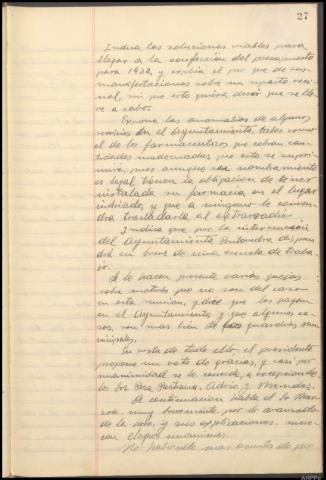 27
Indica las soluciones viables para
llegar a la confección del presupuesto
para 1932, y explica el por que de sus
manifestaciones sobre un reparto veci-
nal, sin que esto quiera decir que se lle-
ve a cabo.
Expone las anomalías de algunos
servicios en el Ayuntamiento, tales como
el de los farmaceuticos que cobran can-
tidades inadecuadas que esto se supri-
mirá, pues aunque sea nombramiento
es legal, tienen la obligacion de tener
instalada su farmacia en el lugar
indicado, y que a ninguno le conven-
dra trasladarla al extrarradio.
Indica que por la intervención
del Ayuntamiento, Pontevedra dispon
drá en breve de una escuela de traba-
jo.
Se le hacen presente varias quejas
sobre motivos que no son del caso
en esta reunion, y dice que las hagan
en el Ayuntamiento, y que algunos ca-
sos, son mas bien de los guardias mu-
nicipales.
En vista de todo ello el presidente
propone un voto de gracias, y casi por
unanimidad se le concede, a excepcion de
los Srs. Poza Pastrana, Adrio y Mendez.
A continuacion habla el Sr.
muy brevemente por lo avanzado
de la hora, y sus explicaciones, mere-
cen elogios unanimes.
No habiendo mas asuntos de que
AHPPo